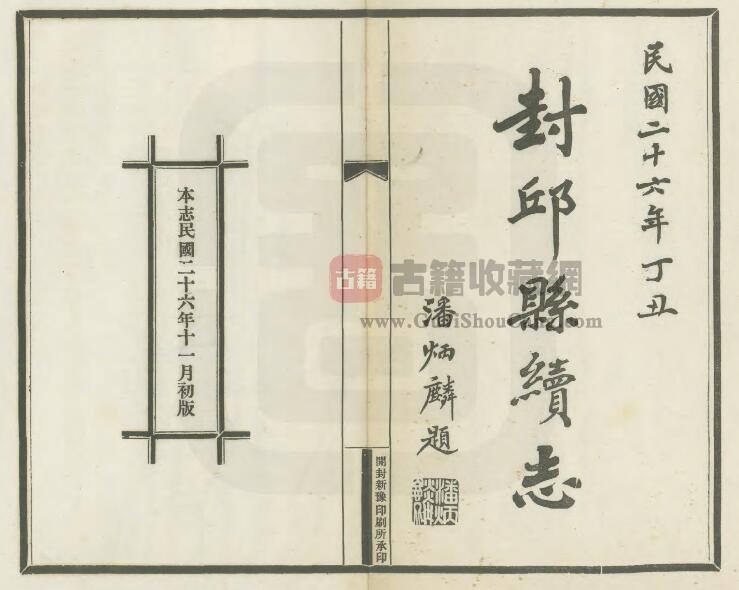 民國二十六年丁丑
封邱縣續志
潘炳麟題
開封新豫印刷所承印
本志民國二十六年十一月初版
古籍
古籍收藏網